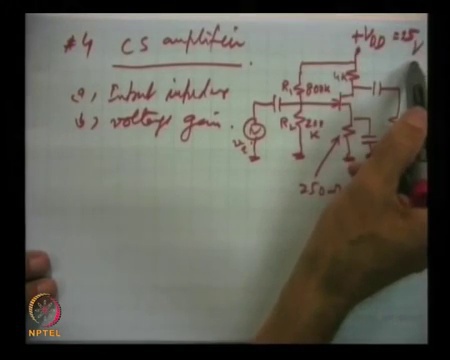 #4 CS amplifier
a), Input impedance
b), voltage gain.
+VDD = 25V
4K
R1 800K
R2 200 K
250
NPTEL